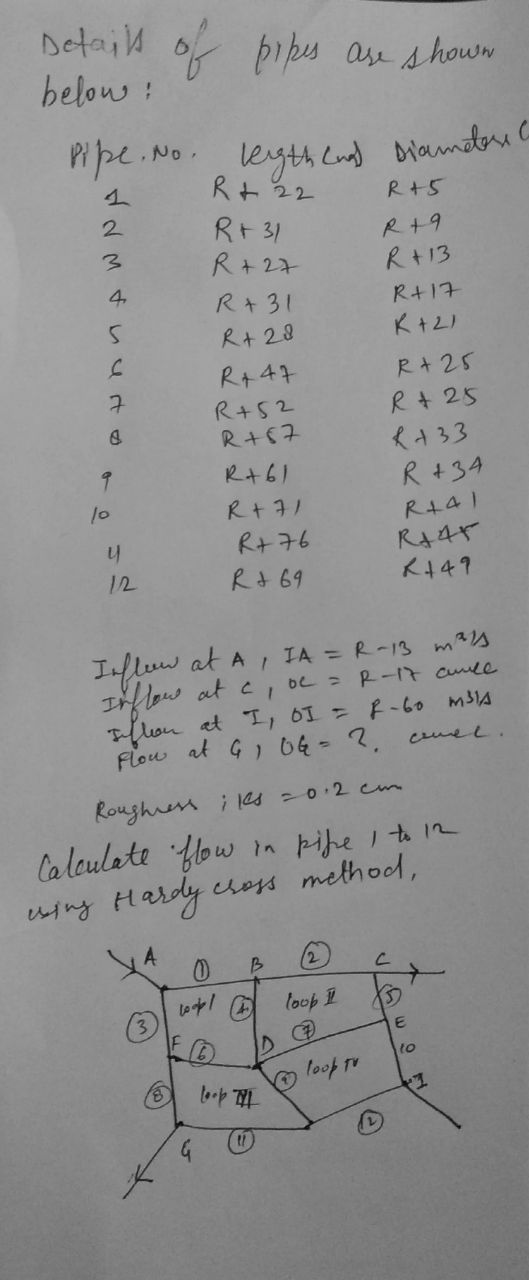 Details of pipes are shown
below :
Pipe. No. length (m) Diameters (
1 R + 22 R+5
2 R+ 31 R+9
3 R+27 R+13
4 R+31 R+17
5 R+28 R+21
6 R+47 R+25
7 R+52 R+25
8 R+57 R+33
9 R+61 R+34
10 R+71 R+41
11 R+76 R+45
12 R+69 R+49
Inflow at A, IA = R-13 m3/s
Inflow at C, OC = R-17 cumec
Inflow at I, OI = R-60 m3/s
Flow at G, OG = ?. cumec.
Roughness ; ks = 0.2 cm
Calculate flow in pipe 1 to 12
using Hardy cross method,
A 1 B 2 C
loop I 4 loop II 5
3 7 E
F 6 D 10
9 loop IV I
8 loop III
12
G 11